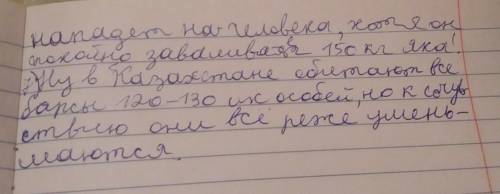 нападет на человека, хотя он
спокойно заваливает 150 кг яка!
Ну в Казахстане обитают все
барсы 120-130 их особей, но к сочу
ствию они всё реже умень-
шаются.